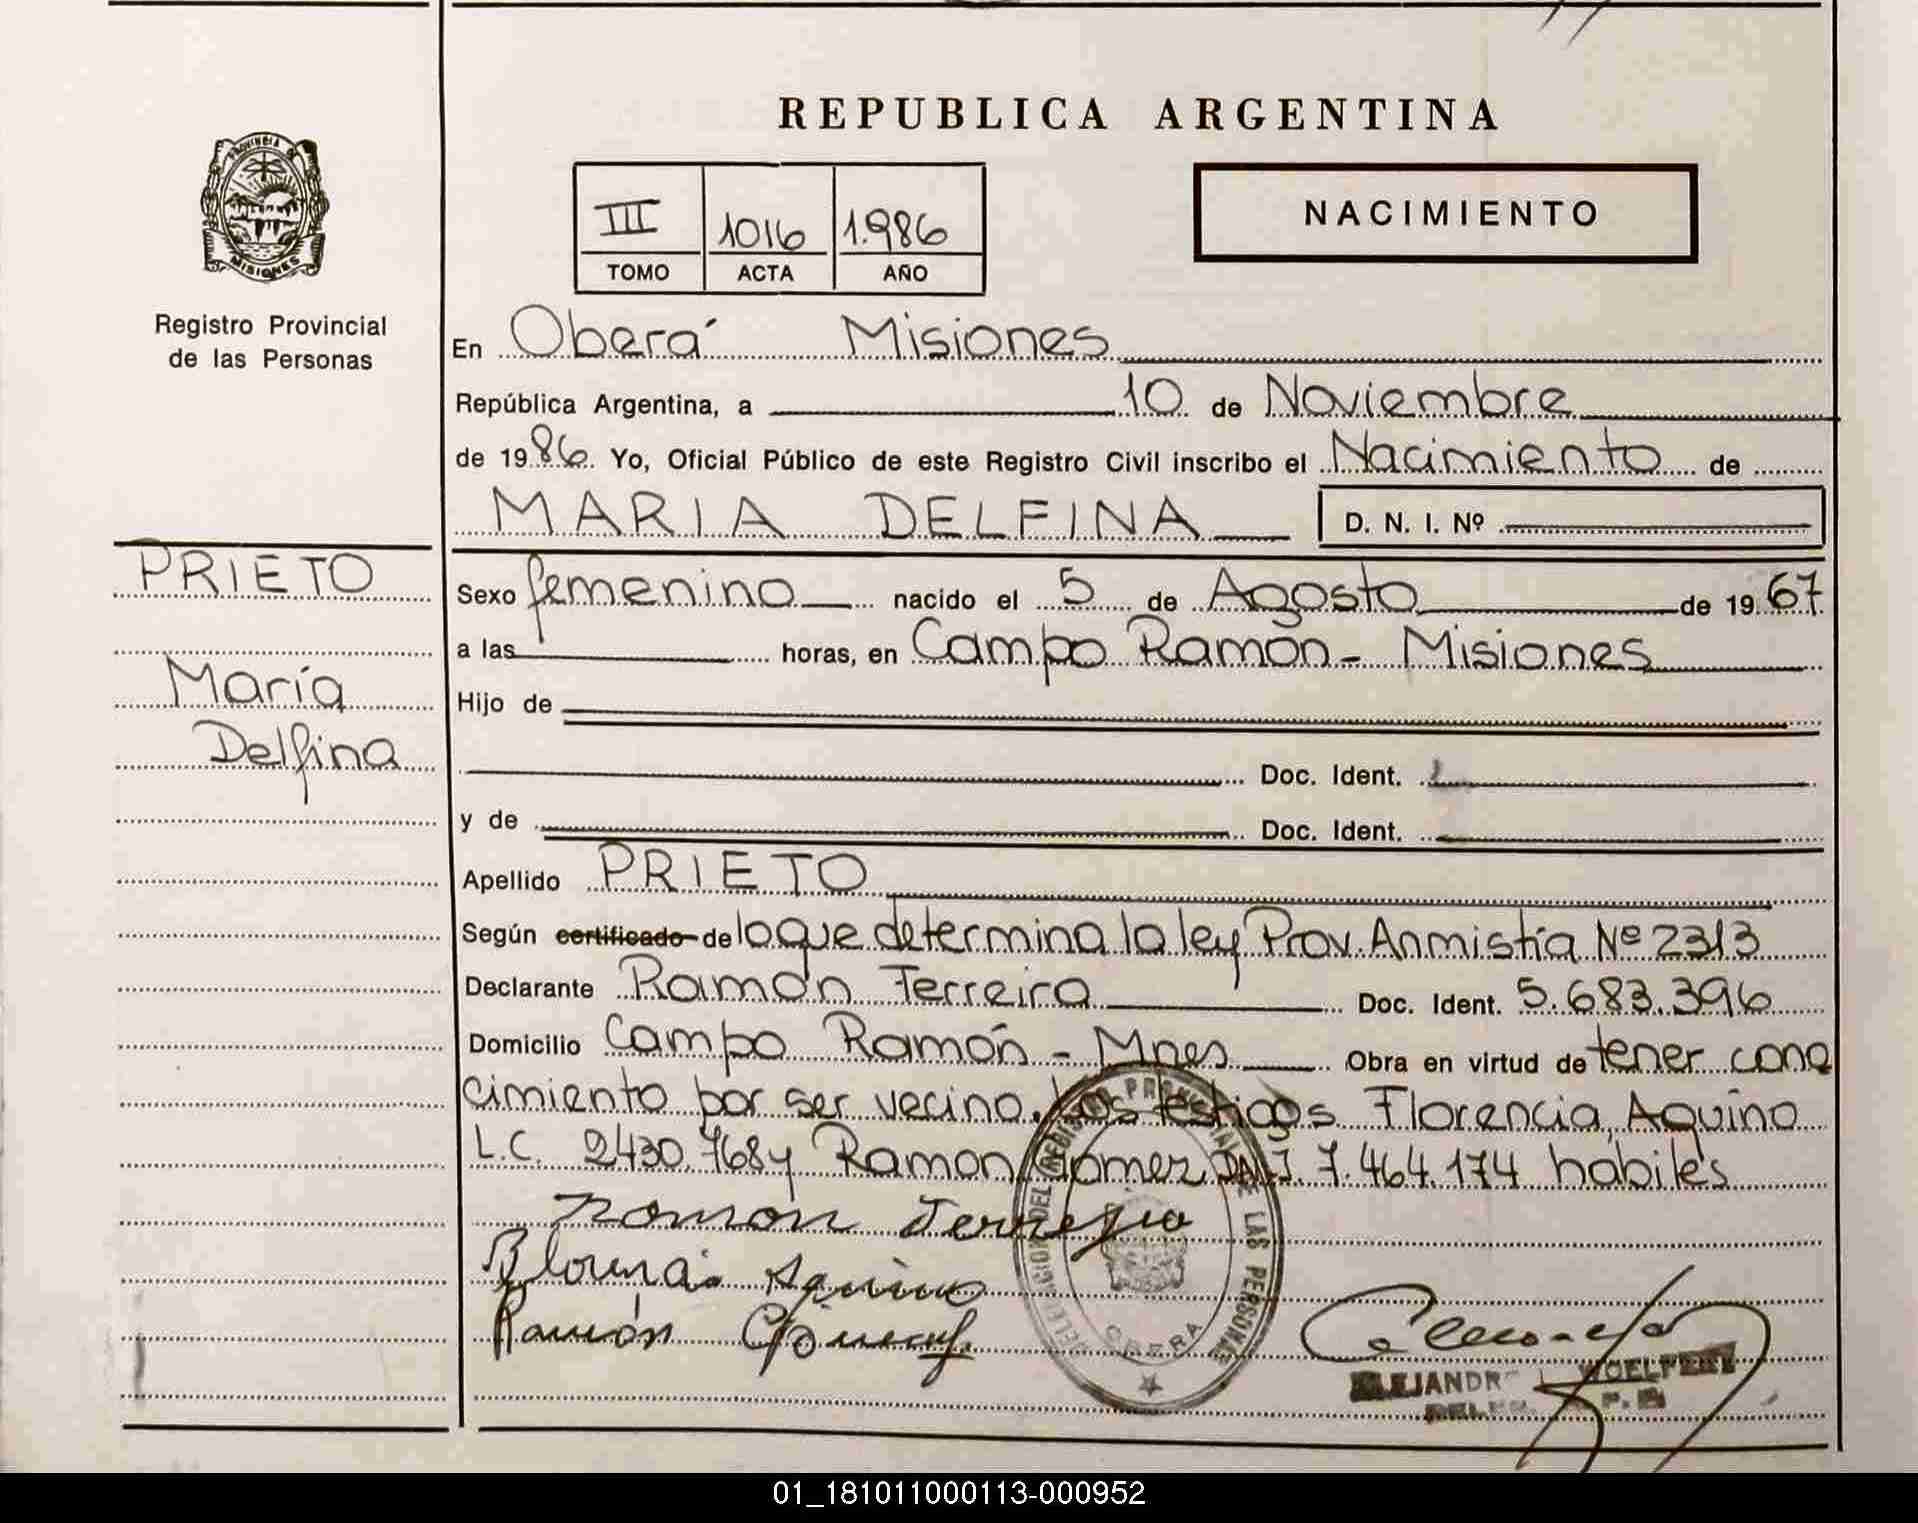 REPUBLICA ARGENTINA
PROVINCIA DE
MISIONES
Registro Provincial
de las Personas
III 1016 1.986
TOMO ACTA AÑO
NACIMIENTO
En Oberá Misiones
República Argentina, a 10 de Noviembre
de 1986 Yo, Oficial Público de este Registro Civil inscribo el Nacimiento de
MARIA DELFINA D. N. I. Nº
PRIETO
María
Delfina
Sexo femenino nacido el 5 de Agosto de 1967
a las horas, en Campo Ramón - Misiones
Hijo de
Doc. Ident.
y de Doc. Ident.
Apellido PRIETO
Según certificado de lo que determina la ley Prov. Anmistía Nº 2313
Declarante Ramón Ferreira Doc. Ident. 5.683.396
Domicilio Campo Ramón - Mnes Obra en virtud de tener cono
cimiento por ser vecino. Los testigos Florencia, Aquino
L.C. 2430.768 y Ramon Gomez D.N.I. 7.464.174 habiles
Ramón
Aquino
Ramón
DELEGACION DEL REGISTRO PROVINCIAL DE LAS PERSONAS
OBERA
ALEJANDR
01_181011000113-000952